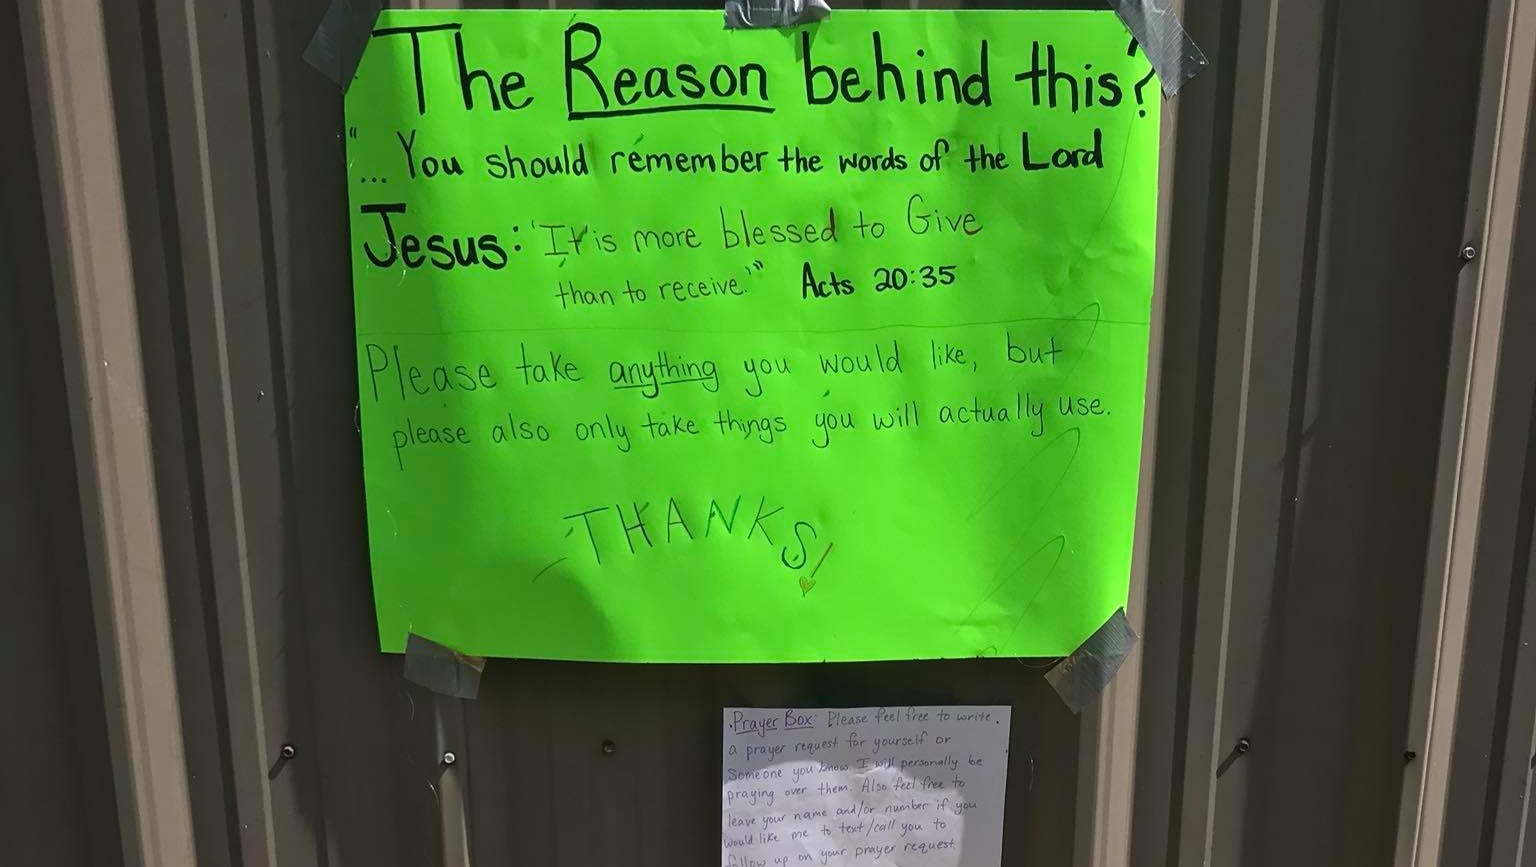 The Reason behind this?
"... You should remember the words of the Lord
Jesus: 'It is more blessed to Give
than to receive.'" Acts 20:35
Please take anything you would like, but
please also only take things you will actually use.
THANKS!
Prayer Box: Please feel free to write
a prayer request for yourself or
Someone you know I will personally be
praying over them. Also feel free to
leave your name and/or number if you
would like me to text/call you to
follow up on your prayer request.